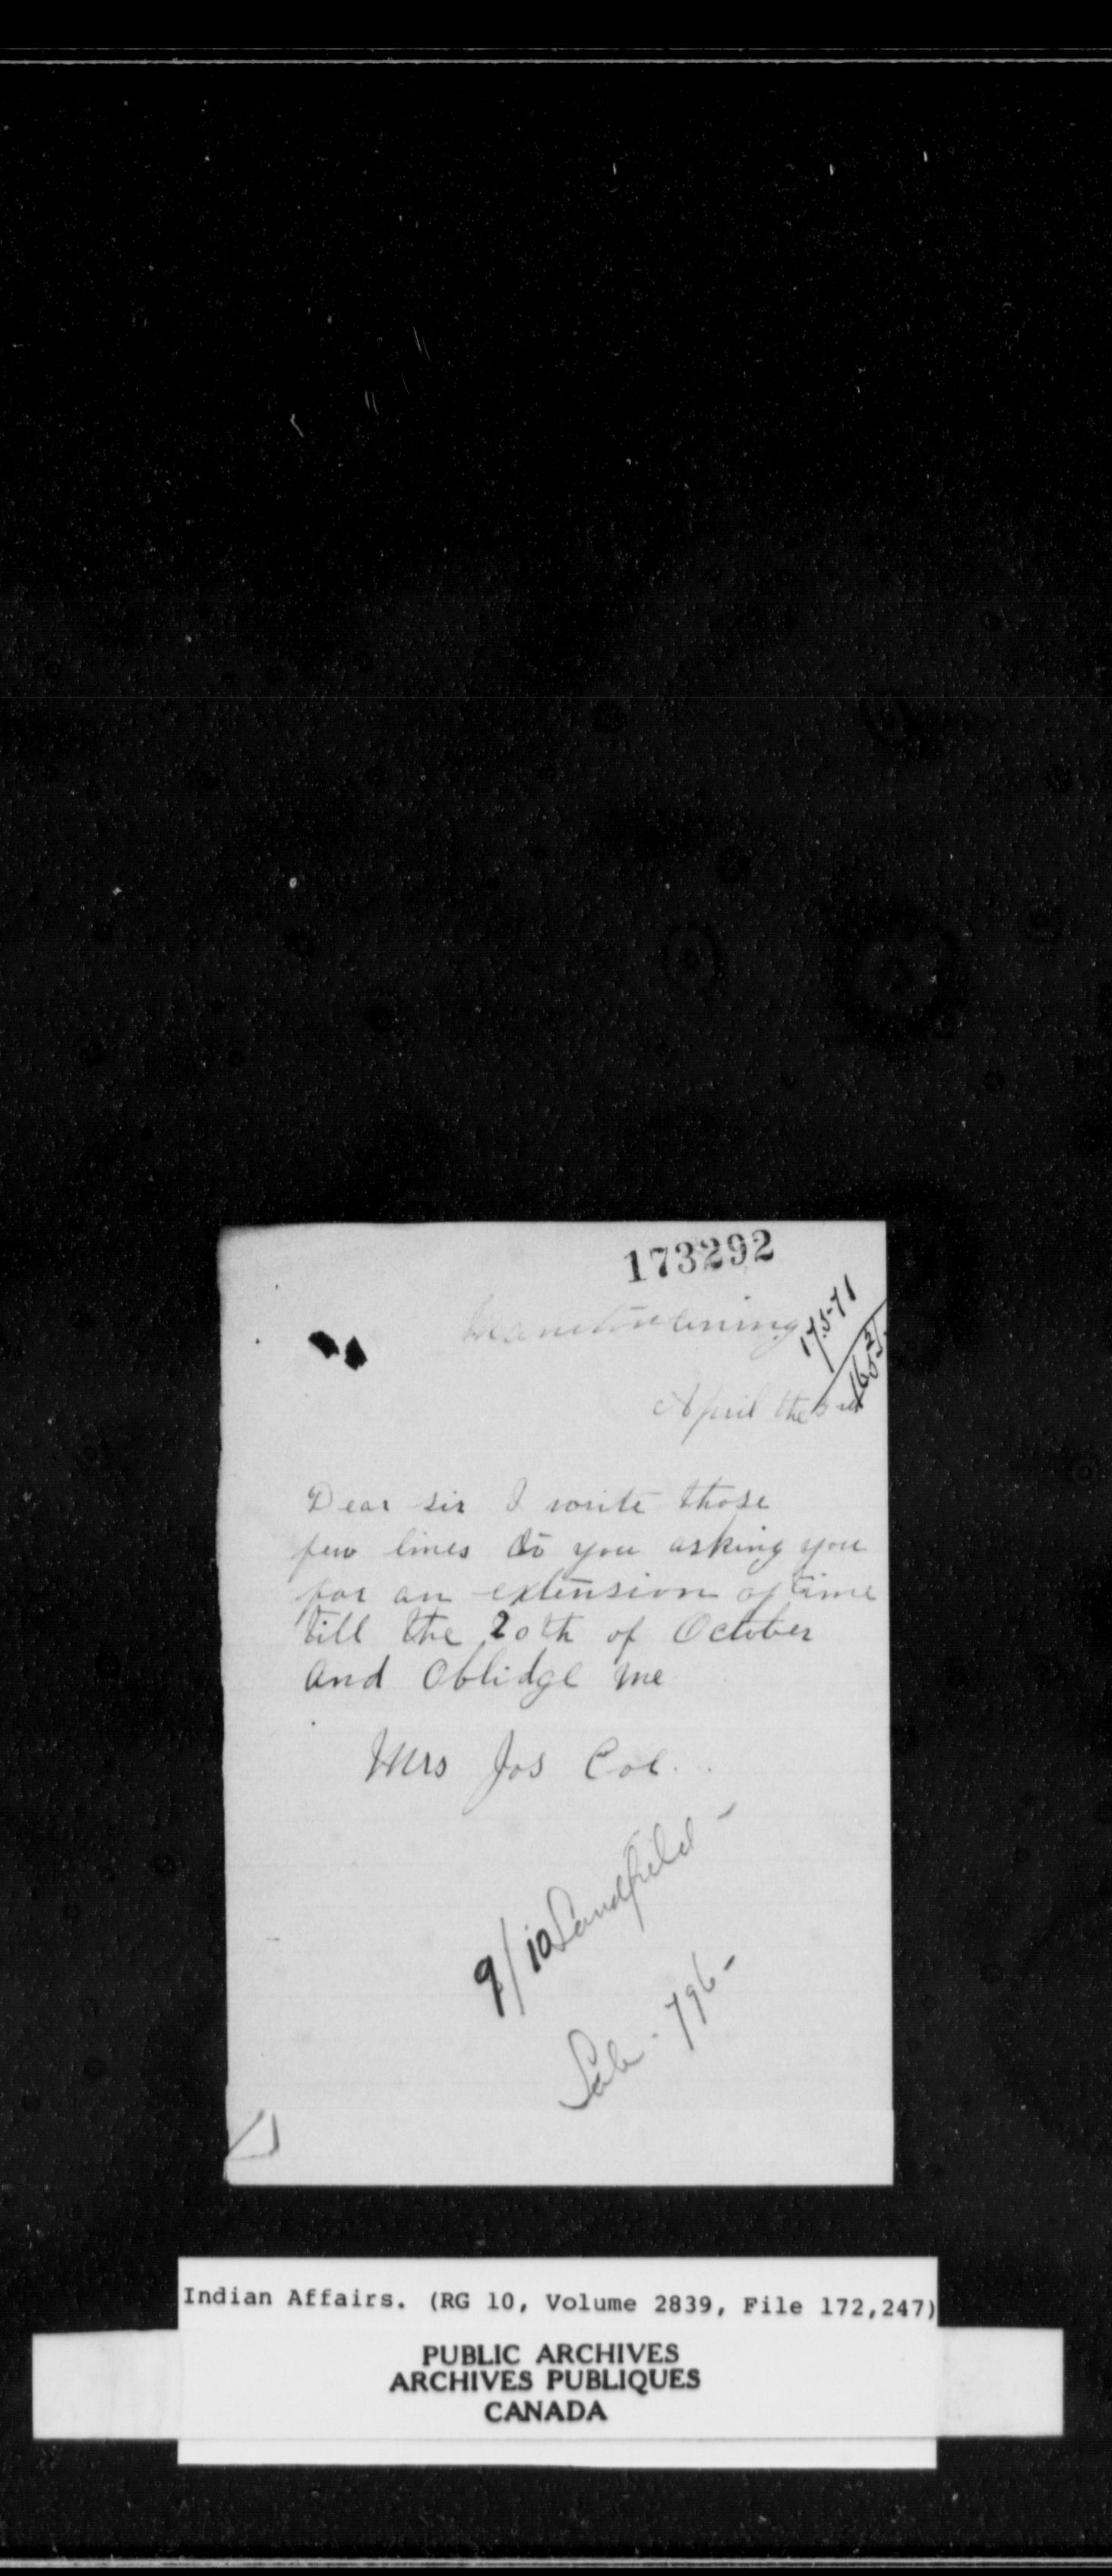 173292
Manitowaning
17571
April the 3rd
Dear sir I write those
few lines to you asking you
for an extension of time
till the 20th of October
and Oblidge me
Mrs Jos Coe
9/10 Sandfield -
Sale - 796 -
Indian Affairs. (RG 10, Volume 2839, File 172,247)
PUBLIC ARCHIVES
ARCHIVES PUBLIQUES
CANADA